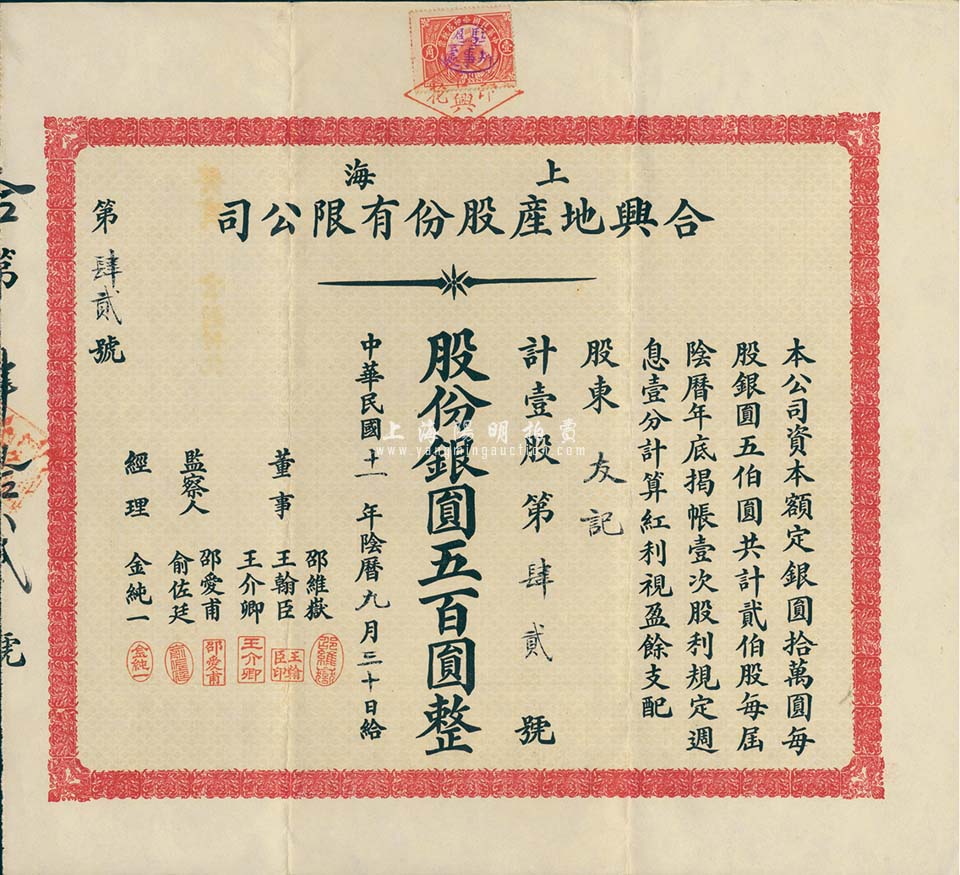 上海
合興地產股份有限公司
本公司資本額定銀圓拾萬圓每
股銀圓五伯圓共計貳伯股每屆
陰曆年底揭帳壹次股利規定週
息壹分計算紅利視盈餘支配
股東 友記
計壹股第肆貳號
股份銀圓五百圓整
中華民國十一年陰曆九月三十日給
董事 邵維嶽
王翰臣
王介卿
監察人 邵愛甫
俞佐廷
經理 金純一
第肆貳號
邵維嶽
王翰臣印
王介卿
邵愛甫
金純一
上海陽明拍賣
www.yangmingauction.com